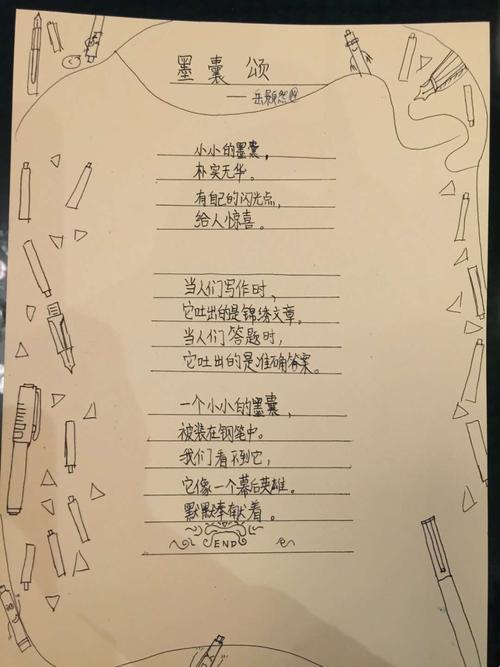 墨囊颂
——岳颢然
小小的墨囊，
朴实无华。
有自己的闪光点，
给人惊喜。
当人们写作时，
它吐出的是锦绣文章。
当人们答题时，
它吐出的是准确答案。
一个小小的墨囊，
被装在钢笔中。
我们看不到它，
它像一个幕后英雄。
默默奉献着。
END